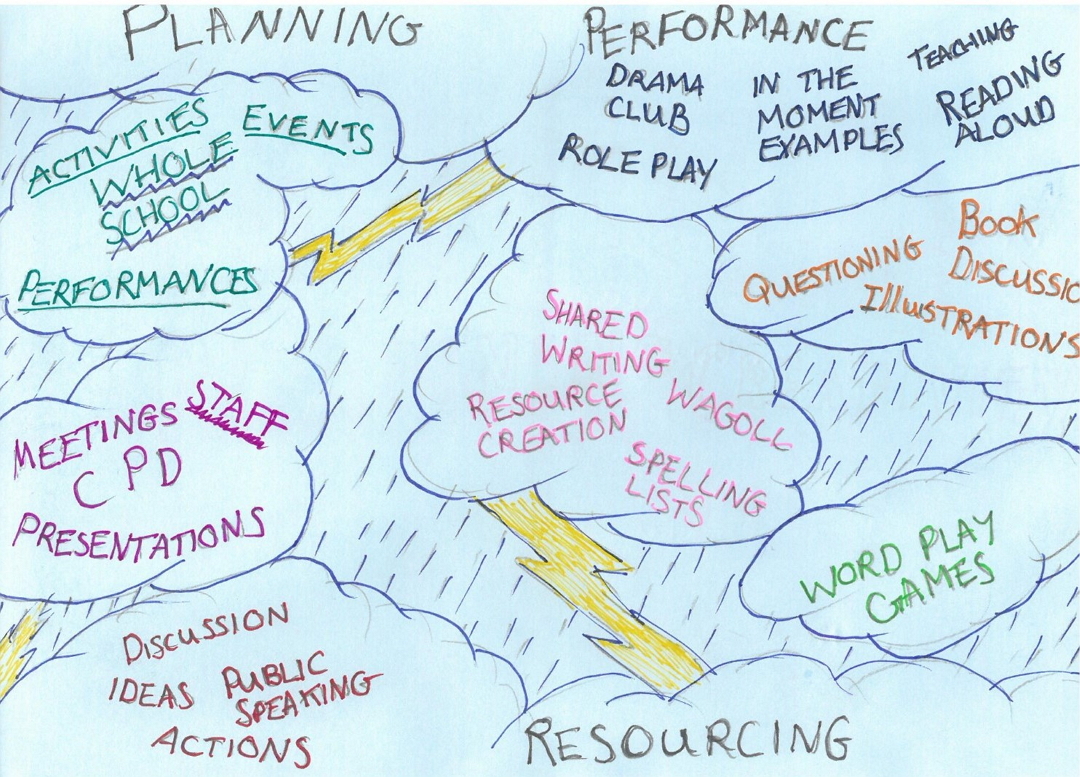 PLANNING
ACTIVITIES
EVENTS
WHOLE
SCHOOL
PERFORMANCES
MEETINGS STAFF
CPD
PRESENTATIONS
DISCUSSION
IDEAS PUBLIC
SPEAKING
ACTIONS
PERFORMANCE
DRAMA
CLUB
ROLE PLAY
IN THE
MOMENT
EXAMPLES
TEACHING
READING
ALOUD
QUESTIONING
Book
DISCUSSIO
IllusTRATIONS
SHARED
WRITING
RESOURCE
CREATION
WAGOLL
SPELLING
LISTS
WORD PLAY
GAMES
RESOURCING